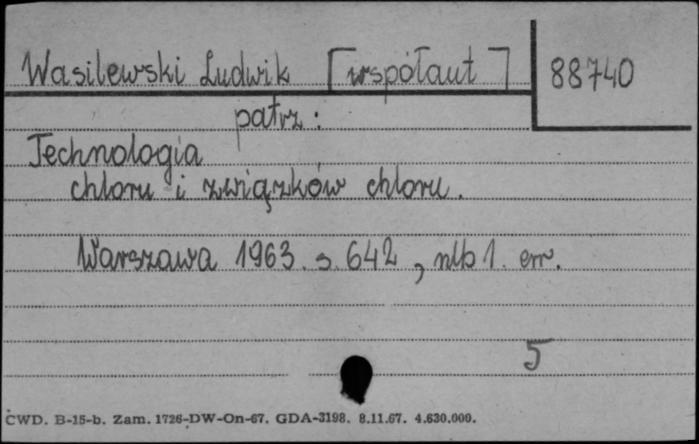 Wasilewski Ludwik [współaut] 88740
patrz:
Technologia
chloru i związków chloru.
Warszawa 1963. s. 642, nlb 1. err.
5
CWD. B-15-b. Zam. 1726-DW-On-67. GDA-3198. 8.11.67. 4.630.000.